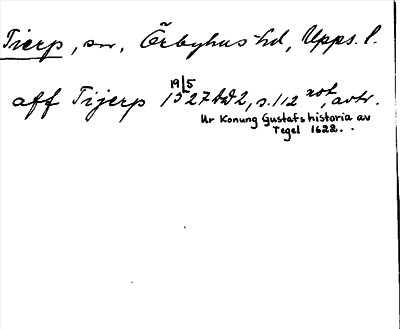 Tierp, sn, Örbyhus hd, Upps. l.
aff Tijerp 19/5 1527 Ad2, s. 112 not, avtr.
Ur Konung Gustafs historia av
Tegel 1622.